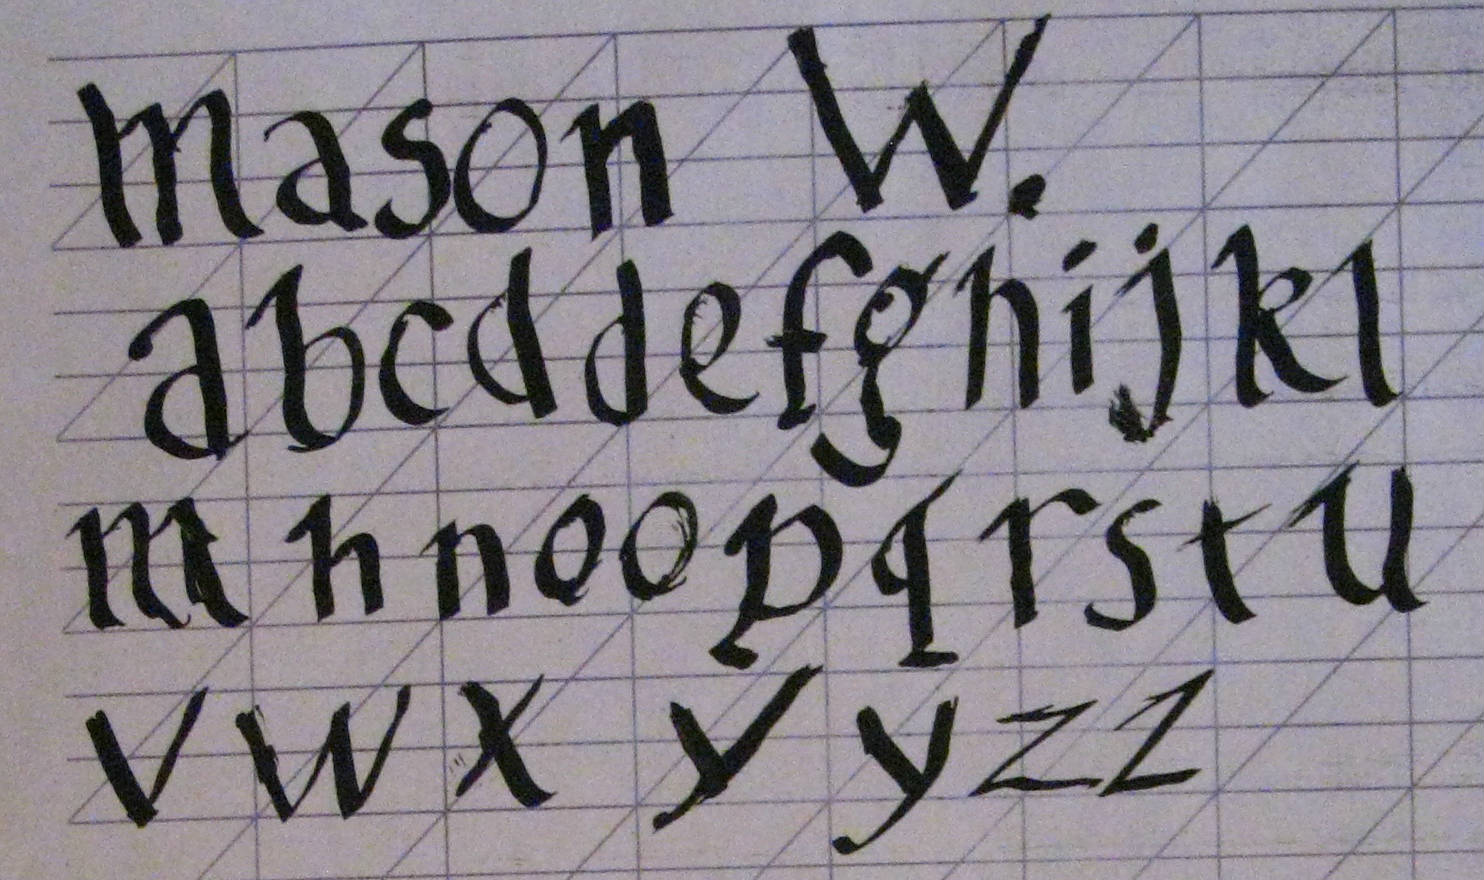 mason W.
abcddefghijkl
mnnoopqrstu
vwxyyzz